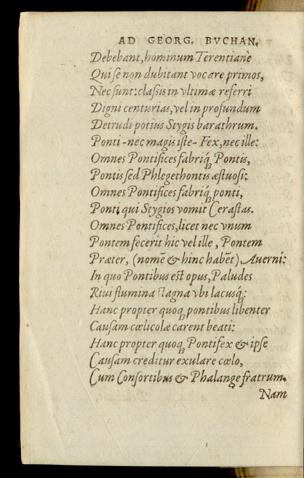 AD GEORG. BVCHAN.
Debebant, hominum Terentiane
Qui se non dubitant vocare primos,
Nec sunt: classis in vltimæ referri
Digni centurias, vel in profundum
Detrudi potius Stygis barathrum.
Ponti-nec magis iste-Fex, nec ille:
Omnes Pontifices fabriq́ Pontis,
Pontis sed Phlegethontis æstuosi:
Omnes Pontifices fabriq́ ponti,
Ponti qui Stygios vomit Cerastas.
Omnes Pontifices, licet nec vnum
Pontem fecerit hic vel ille, Pontem
Præter, (nomē & hinc habēt) Auerni:
In quo Pontibus est opus, Paludes
Riui flumina stagna vbi lacusq́:
Hanc propter quoq, pontibus libenter
Causam cœlicolæ carent beati:
Hanc propter quoq, Pontifex & ipse
Causam creditur exulare cœlo,
Cum Consortibus & Phalange fratrum.
Nam